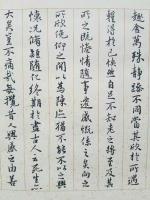 趣舍萬殊靜躁不同當其欣於所遇
暫得於己快然自足不知老之將至及其
所之既惓情隨事遷感慨係之矣向之
所欣俛仰之間以為陳迹猶不能不以之興
懷況脩短隨化終期於盡古人云死生亦
大矣豈不痛哉每攬昔人興感之由若